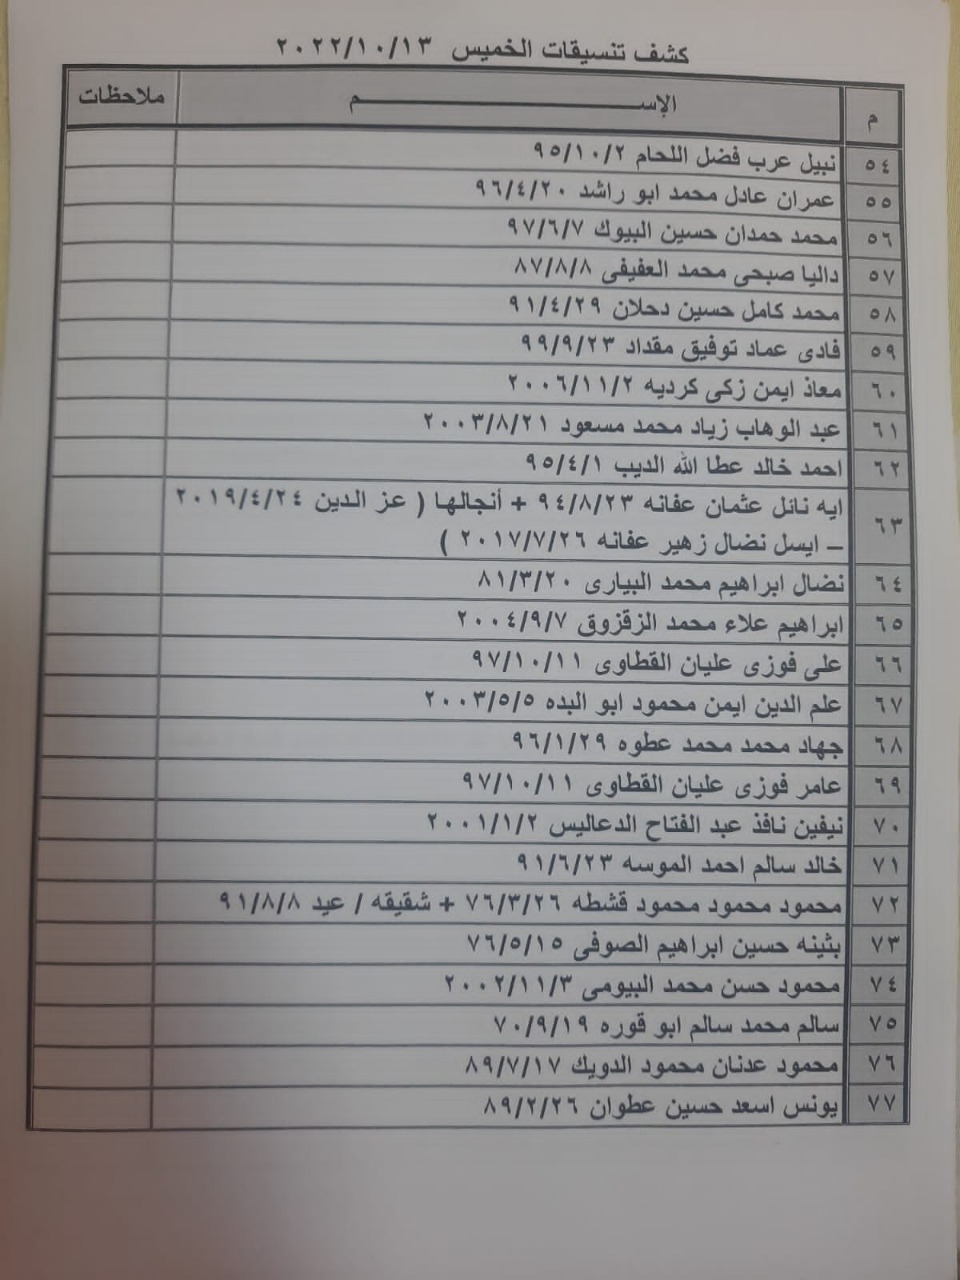 كشف تنسيقات الخميس ٢٠٢٢/١٠/١٣
م الإســـــــــــم ملاحظات
٥٤ نبيل عرب فضل اللحام ٩٥/١٠/٢
٥٥ عمران عادل محمد ابو راشد ٩٦/٤/٢٠
٥٦ محمد حمدان حسين البيوك ٩٧/٦/٧
٥٧ داليا صبحى محمد العفيفى ٨٧/٨/٨
٥٨ محمد كامل حسين دحلان ٩١/٤/٢٩
٥٩ فادى عماد توفيق مقداد ٩٩/٩/٢٣
٦٠ معاذ ايمن زكى كرديه ٢٠٠٦/١١/٢
٦١ عبد الوهاب زياد محمد مسعود ٢٠٠٣/٨/٢١
٦٢ احمد خالد عطا الله الديب ٩٥/٤/١
٦٣ ايه نائل عثمان عفانه ٩٤/٨/٢٣ + أنجالها ( عز الدين ٢٠١٩/٤/٢٤
– ايسل نضال زهير عفانه ٢٠١٧/٧/٢٦ )
٦٤ نضال ابراهيم محمد البيارى ٨١/٣/٢٠
٦٥ ابراهيم علاء محمد الزقزوق ٢٠٠٤/٩/٧
٦٦ على فوزى عليان القطاوى ٩٧/١٠/١١
٦٧ علم الدين ايمن محمود ابو البده ٢٠٠٣/٥/٥
٦٨ جهاد محمد محمد عطوه ٩٦/١/٢٩
٦٩ عامر فوزى عليان القطاوى ٩٧/١٠/١١
٧٠ نيفين نافذ عبد الفتاح الدعاليس ٢٠٠١/١/٢
٧١ خالد سالم احمد الموسه ٩١/٦/٢٣
٧٢ محمود محمود محمود قشطه ٧٦/٣/٢٦ + شقيقه / عيد ٩١/٨/٨
٧٣ بثينه حسين ابراهيم الصوفى ٧٦/٥/١٥
٧٤ محمود حسن محمد البيومى ٢٠٠٢/١١/٣
٧٥ سالم محمد سالم ابو قوره ٧٠/٩/١٩
٧٦ محمود عدنان محمود الدويك ٨٩/٧/١٧
٧٧ يونس اسعد حسين عطوان ٨٩/٢/٢٦